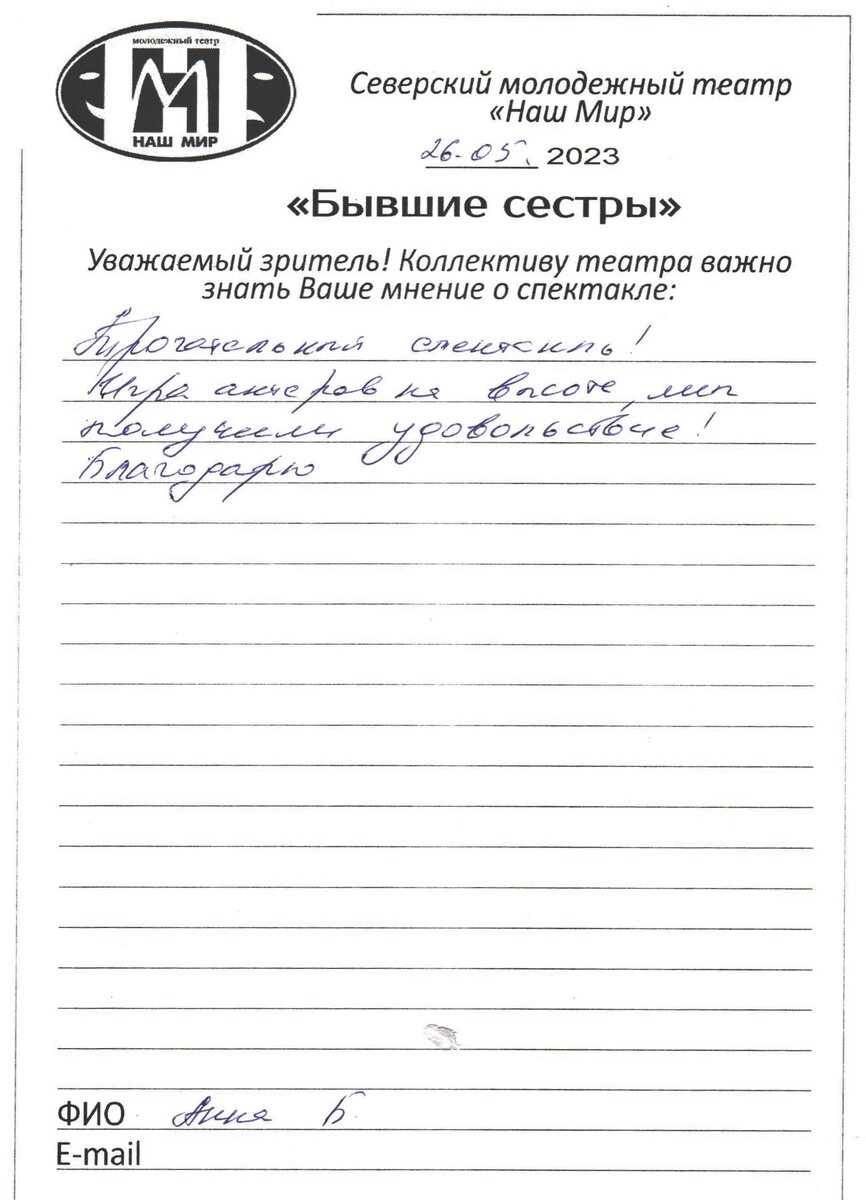 молодежный театр
НАШ МИР
Северский молодежный театр
«Наш Мир»
26.05. 2023
«Бывшие сестры»
Уважаемый зритель! Коллективу театра важно
знать Ваше мнение о спектакле:
Трогательный спектакль!
Игра актеров на высоте, мы
получили удовольствие!
Благодарю
ФИО Анна Б.
E-mail